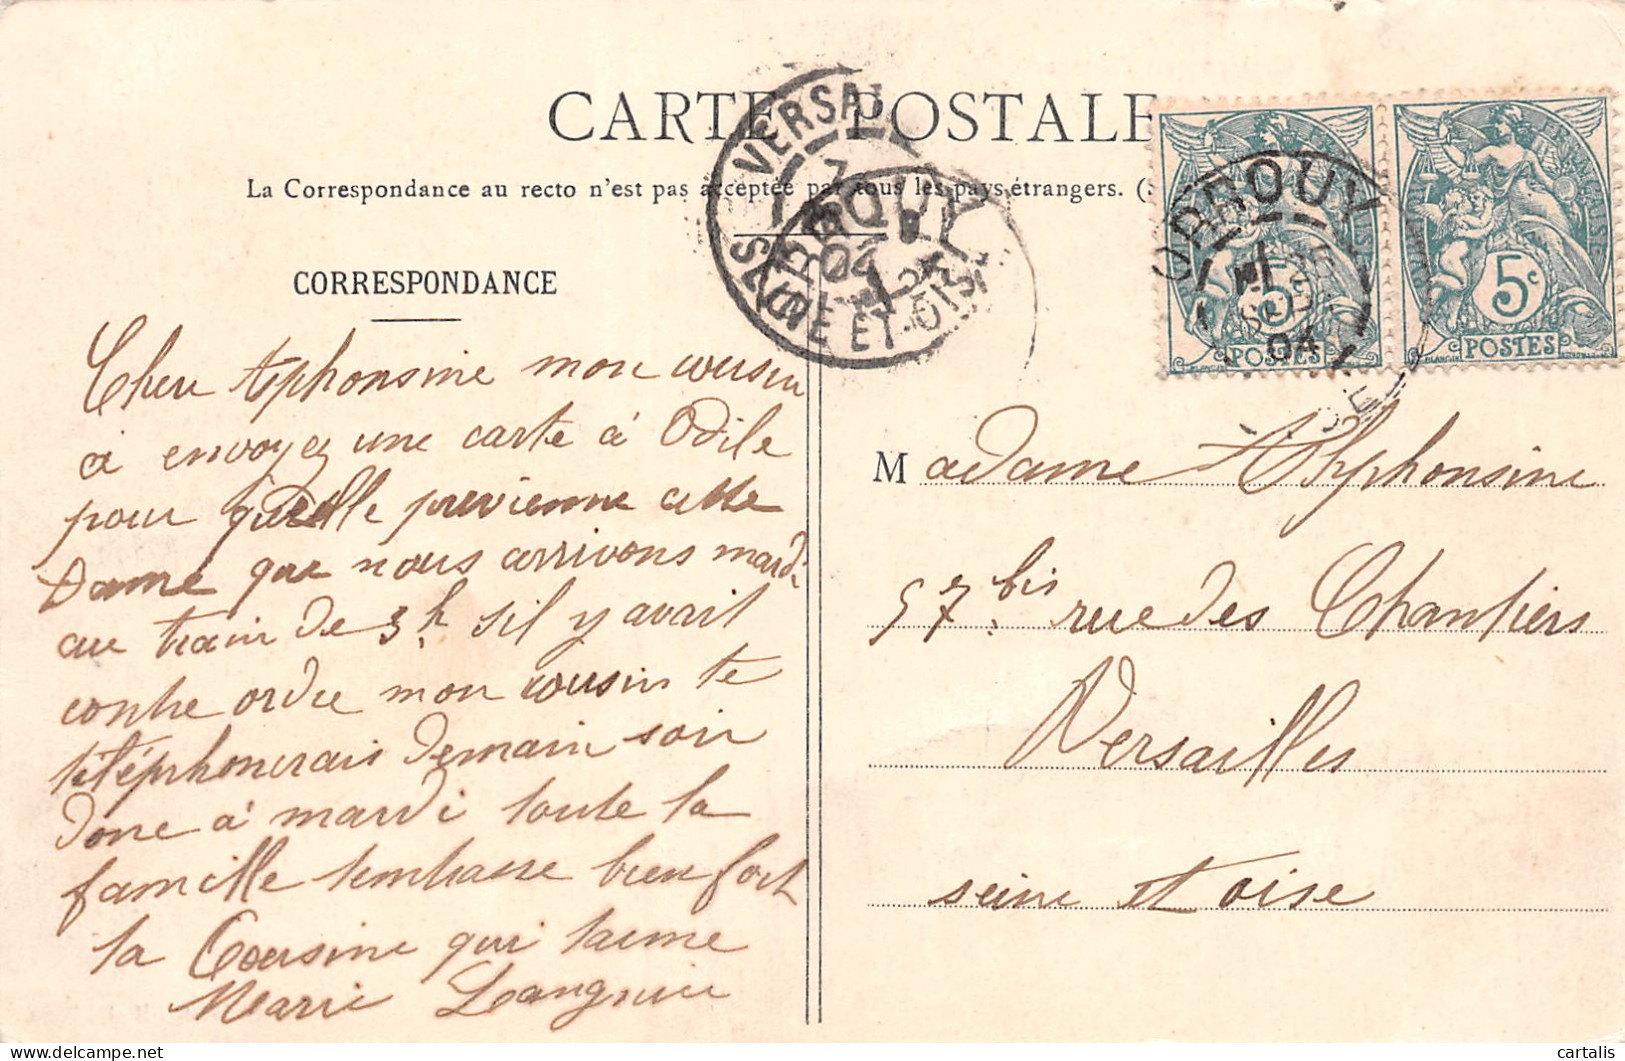 CARTE POSTALE
La Correspondance au recto n'est pas acceptée par tous les pays étrangers. (
CORRESPONDANCE
Chere Alphonsine mon cousin
à envoyez une carte à Odile
pour qu'elle previenne cette
Dame que nous arrivons mardi
au train de 3h. sil y avait
contre ordre mon cousin te
téléphonerais demain soir
donc à mardi toute la
famille tembrasse bien fort
ta Cousine qui taime
Marie
VERSAI
7
04
SEINE ET-OISE
ORROUY
04
5
POSTES
5c
POSTES
Madame Alyphonsine
57 bis rue des Chantiers
Versailles
seine et oise
cartalis